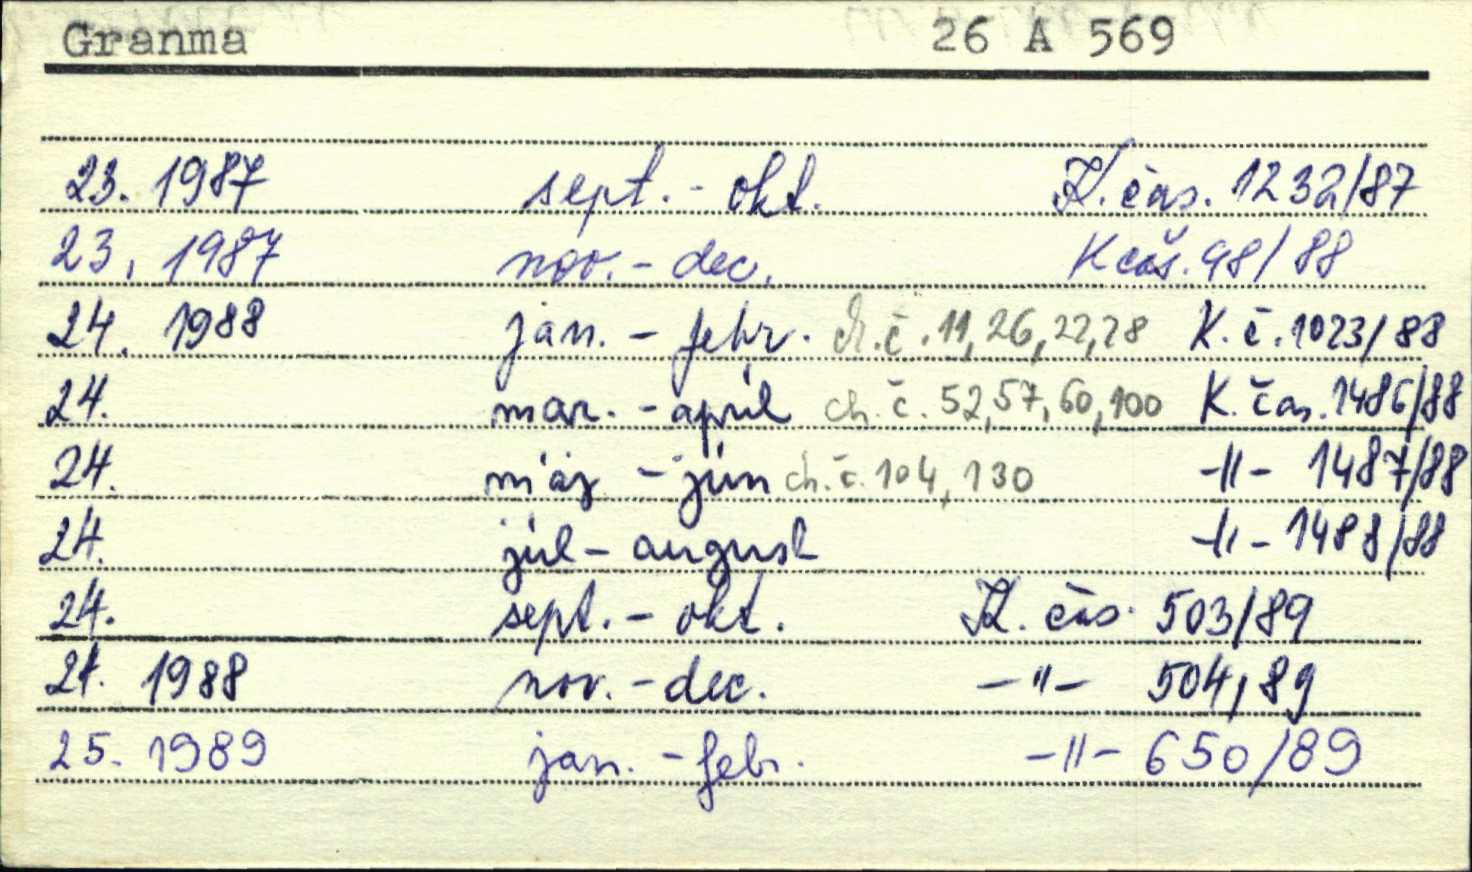 Granma 26 A 569
23. 1987 sept. - okt. K. čas. 1232/87
23. 1987 nov. - dec. K čas. 98/88
24. 1988 jan. - febr. ch. č. 11, 26, 27, 28 K. č. 1023/88
24. mar. - apríl ch. č. 52, 57, 60, 100 K. čas. 1486/88
24. máj - jún ch. č. 104, 130 -11- 1487/88
24. júl - august -11- 1488/88
24. sept. - okt. K. čas. 503/89
24. 1988 nov. - dec. -"- 504/89
25. 1989 jan. - febr. -11- 650/89